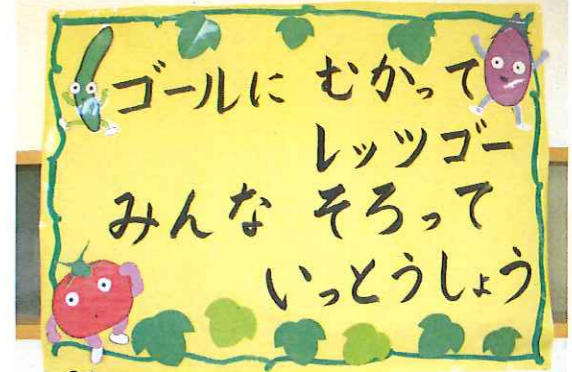 ゴールに むかって
レッツゴー
みんな そろって
いっとうしょう